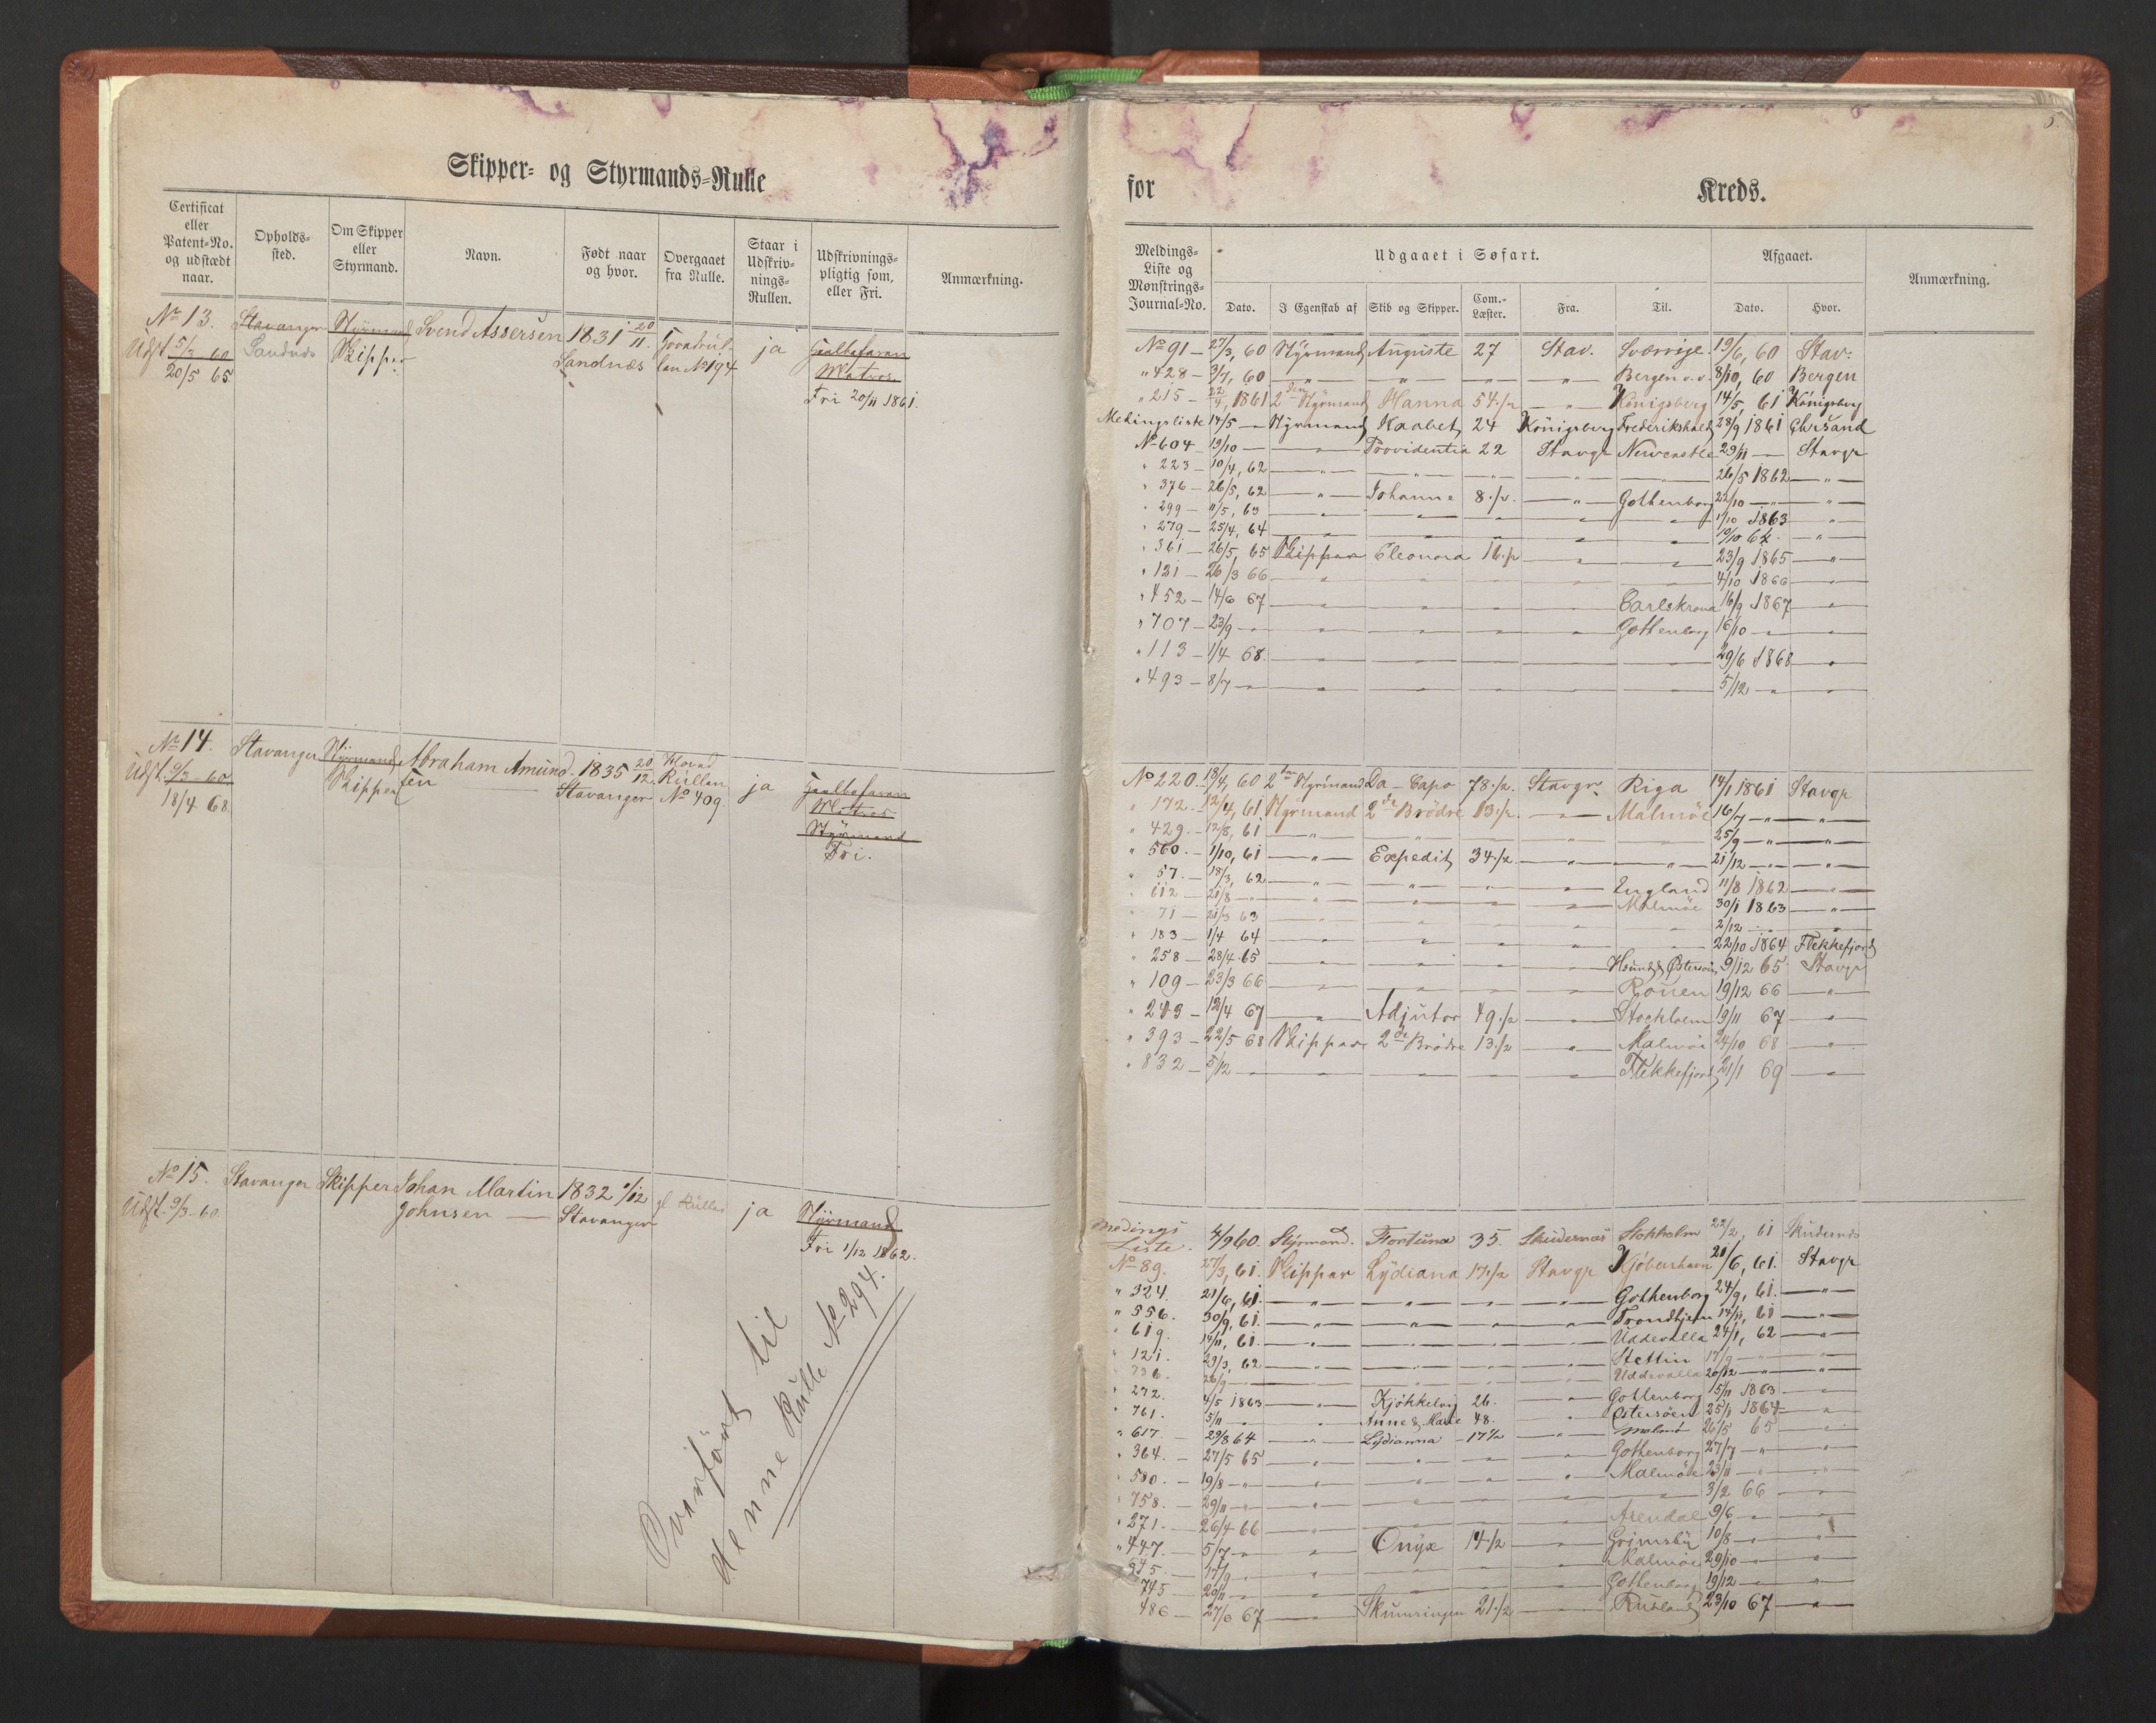 Skipper- og Styrmands-Rulle
Certificat eller Patent-No. og udstædt naar.
Opholds-sted.
Om Skipper eller Styrmand.
Navn.
Født naar og hvor.
Overgaaet fra Rulle.
Staar i Udskriv-nings-Rullen.
Udskrivnings-pligtig som, eller Fri.
Anmærkning.
No 13. Stavanger Styrmand Svend Assersen 1831 20/11
Udst 5/3 60 Sandnes Skipper Sandnæs No 194 ja
20/5 65 Matros
Fri 20/11 1861.
No 14. Stavanger Styrmand Abraham Amund- 1835 20/12 Hoved
Udst. 9/3 60 Skipper sen Stavanger Rullen ja
18/4 68 No 409.
Matros
Styrmand
Fri.
No 15. Stavanger Skipper Johan Martin 1832 1/12 gl Rulle ja Styrmand
Udst. 9/3 60 Johnsen Stavanger
Fri 1/12 1862.
Overført til
denne Rulle No 294.
for Kreds.
5.
Meldings-Liste og Mønstrings-Journal-No.
Udgaaet i Søfart.
Afgaaet.
Anmærkning.
Dato.
I Egenskab af
Skib og Skipper.
Com.-Læster.
Fra.
Til.
Dato.
Hvor.
No 91 — 27/3, 60 Styrmand Auguste 27 Stav. Sverrige 19/6, 60 Stav:
" 428 — 3/7, 60 — " — — " — — — " — Bergen o.v. 8/10, 60 Bergen
" 215 — 22/4, 1861 2den Styrmand Hanna 54 1/2 — " — Königsberg 14/5, 61 Königsberg
Meldingsliste 14/5 — Styrmand Kaabet 24 Königsberg Frederikshald 28/9 1861 Chrsand
No 604 19/10 — — " — Providentia 22 Stavgr Newcastle 29/11 — Stavgr
" 223 — 10/4, 62 — " — — " — — " — — " — 26/5 1862 — " —
" 376 — 26/5, 62 — " — Johanne 8 1/2 — " — Gothenborg 22/10 — " — — " —
" 299 — 11/5, 63 — " — — " — — " — — " — — " — 1/10 1863 — " —
" 279 — 25/4, 64 — " — — " — — " — — " — — " — 10/10 64. — " —
" 361 — 26/5, 65 Skipper Eleonora 16 1/2 — " — — " — 23/9 1865 — " —
" 121 — 26/3 66 — " — — " — — " — — " — — " — 4/10 1866 — " —
" 452 — 14/6 67 — " — — " — — " — — " — Carlskrona 16/9 1867 — " —
" 707 — 23/9 — — " — — " — — " — — " — Gothenborg 16/10 — " — — " —
" 113 — 1/4 68. — " — — " — — " — — " — — " — 29/6 1868 — " —
" 493 — 8/7 — " — — " — — " — — " — — " — — " — 5/12 — " — — " —
No 220. 18/4, 60 2den Styrmand Da-Capo 78 1/2. Stavgr. Riga 14/1 1861 Stavgr
" 172. 12/4, 61 Styrmand 2de Brödre 13 1/2. — " — Malmöe 16/7 — " — — " —
" 429. — 12/8, 61 — " — — " — — " — — " — — " — 25/9 — " — — " —
" 560. — 1/10, 61 — " — Expedit 34 1/2 — " — — " — 21/12 — " — — " —
" 57. — 18/3, 62 — " — — " — — " — — " — England 11/8 1862 — " —
" 612 — 21/8 — " — — " — — " — — " — — " — Malmöe 30/1 1863 — " —
" 71 — 21/3 63 — " — — " — — " — — " — — " — 2/12 — " — — " —
" 183 — 1/4 64 — " — — " — — " — — " — — " — 22/10 1864 Flekkefjord
" 258 — 28/4 65 — " — — " — — " — — " — Østersøen 9/12 65 Stavgr
" 109 — 23/3 66 — " — — " — — " — — " — Rouen 19/12 66 — " —
" 243 — 12/4 67 — " — Adjutor 49 1/2 — " — Stockholm 19/11 67 — " —
" 393 — 22/5 68 Skipper 2de Brödre 13 1/2 — " — Malmöe 24/10 68 — " —
" 832 — 5/12 — — " — — " — — " — — " — Flekkefjord 21/1 69 — " —
Meldings
Liste. 4/9 60. Styrmand. Fortuna 35. Skudesnæs Stokholm 22/2, 61 Skudesnæs
No 89. 27/3, 61. Skipper Lydiana 17 1/2 Stavgr Kjöbenhavn 21/6, 61. Stavgr
" 324. 21/6, 61. — " — — " — — " — — " — Gothenborg 24/9, 61. — " —
" 556. 30/9, 61. — " — — " — — " — — " — Trondhjem 14/11, 61 — " —
" 619. 14/11, 61. — " — — " — — " — — " — Uddevalla 24/1, 62 — " —
" 121. 23/3, 62 — " — — " — — " — — " — Stettin 17/9 — " — — " —
" 736. 26/9 — — " — — " — — " — — " — Uddevalla 20/12 — " — — " —
" 272. 4/5 1863 — " — Kjökkelvig 26. — " — Gothenborg 15/11 1863 — " —
" 761. 5/11 — " — — " — Anne & Marie 48. — " — Østersöen 25/11 1864 — " —
" 617. 29/8 64 — " — Lydianna 17 1/2 — " — Malmö 26/5 65 — " —
" 364. — 27/5 65 — " — — " — — " — — " — Gothenborg 27/7 — " — — " —
" 580. — 19/8 — " — — " — — " — — " — — " — Malmöe 23/11 — " — — " —
" 758. — 29/11 — " — — " — — " — — " — — " — — " — 3/2 66 — " —
" 271. — 26/4 66 — " — — " — — " — — " — Arendal 9/6 — " — — " —
" 447. — 5/7 — " — — " — Onyx 14 1/2 — " — Grimsby 10/8 — " — — " —
645. — 17/9 — " — — " — — " — — " — — " — Malmöe 29/10 — " — — " —
745 — 20/11 — " — — " — — " — — " — — " — Gothenborg 19/12 — " — — " —
486 — 27/6 67 — " — Skumringen 21 1/2 — " — Rusland 23/10 67 — " —